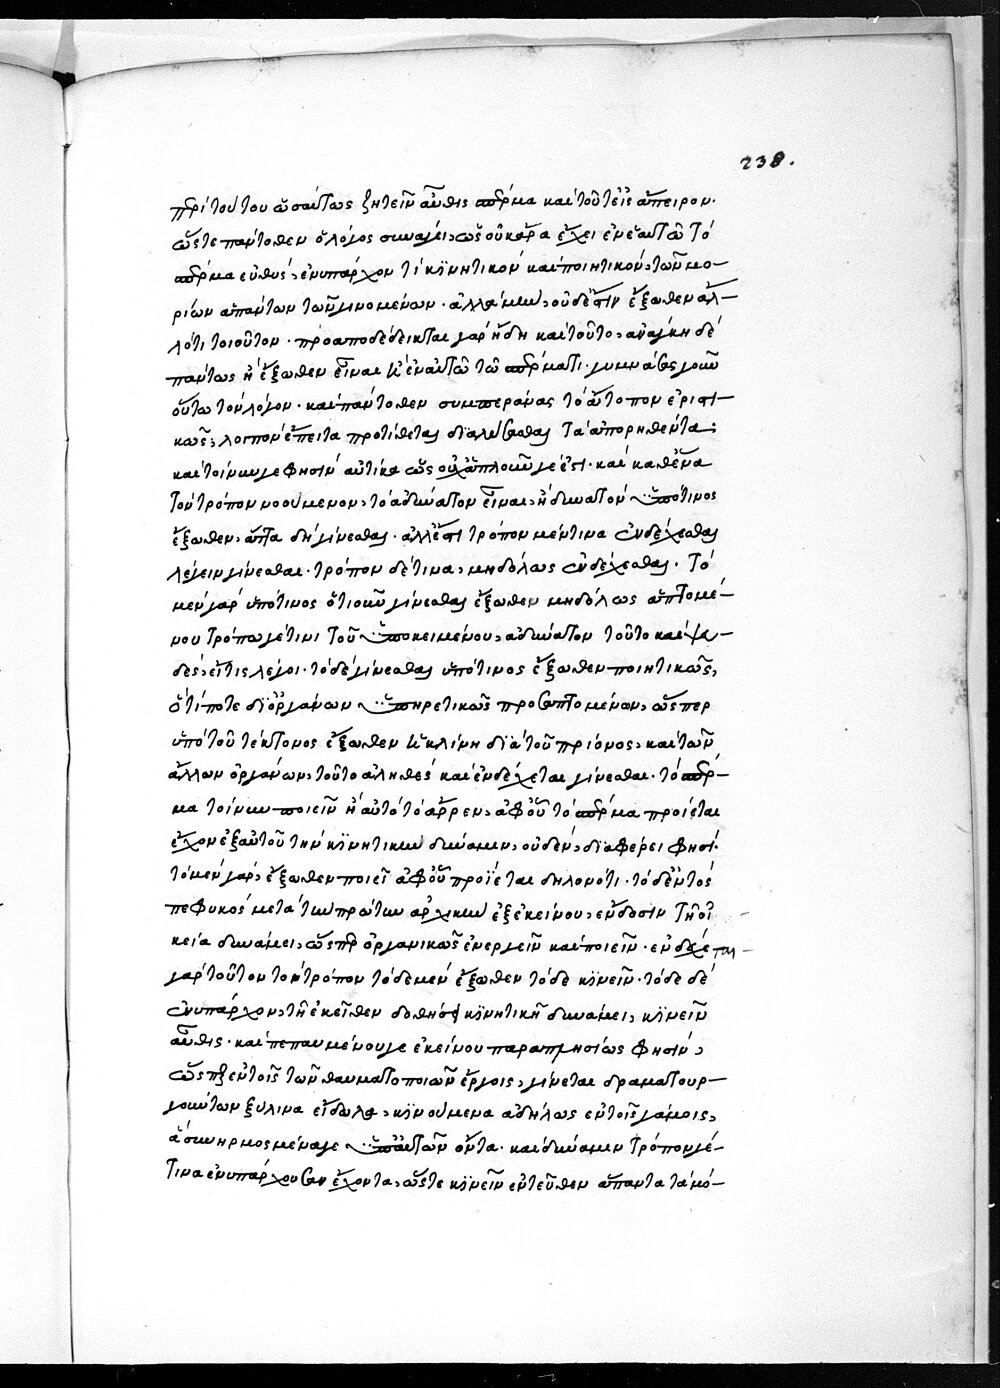 238.
περὶ τούτου ὡσαύτως ζητεῖν αὖθις σπέρμα καὶ τοῦτ' εἰς ἄπειρον.
ὥστε πάντοθεν ὁ λόγος συνάγει, ὡς οὐκ ἄρα ἔχει ἐν ἑαυτῷ τὸ
σπέρμα εὐθὺς, ἐνυπάρχον τὶ κινητικὸν καὶ ποιητικὸν, τῶν μο-
ρίων ἁπάντων τῶν γινομένων. ἀλλὰ μὴν, οὐδ' ἔστιν ἔξωθεν ἄλ-
λό τι τοιοῦτον. προαποδέδεικται γὰρ ἤδη καὶ τοῦτο, ἀνάγκη δὲ
πάντως ἢ ἔξωθεν εἶναι ἢ ἐν αὐτῷ τῷ σπέρματι. γυμνάσας γοῦν
οὕτω τὸν λόγον. καὶ πάντοθεν συμπεράνας τὸ ἄτοπον ἐριστι-
κῶς, λοιπὸν ἔπειτα προτίθεται διαλύσασθαι τὰ ἀπορηθέντα:
καὶ τοίνυν γε φησὶν αὐτίκα ὡς οὐχ ἁπλοῦν γέ ἐστι. καὶ καθ' ἕνα
τὸν τρόπον νοούμενον, τὸ ἀδύνατον εἶναι, ἢ δυνατὸν ὑπό τινος
ἔξωθεν, ἅττα δὴ γίνεσθαι. ἀλλ' ἔστι τρόπον μέν τινα ἐνδέχεσθαι
λέγειν γίνεσθαι. τρόπον δέ τινα, μηδόλως ἐνδέχεσθαι. τὸ
μὲν γὰρ ὑπό τινος ὁτιοῦν γίνεσθαι ἔξωθεν μηδόλως ἁπτομέ-
νου τρόπῳ γέ τινι τοῦ ὑποκειμένου, ἀδύνατον τοῦτο καὶ ψευ-
δὲς, εἴ τις λέγοι. τὸ δὲ γίνεσθαι ὑπό τινος ἔξωθεν ποιητικῶς,
ὅτί ποτε δι' ὀργάνων ὑπηρετικῶς προσαπτομένων, ὥσπερ
ὑπὸ τοῦ τέκτονος ἔξωθεν ἡ κλίνη διὰ τοῦ πρίονος, καὶ τῶν
ἄλλων ὀργάνων, τοῦτο ἀληθὲς καὶ ἐνδέχεται γίνεσθαι. τὸ σπέρ-
μα τοίνυν ποιεῖν ἢ αὐτὸ τὸ ἄρρεν, ἀφ' οὗ τὸ σπέρμα προίεται
ἔχον ἐξ αὐτοῦ τὴν κινητικὴν δύναμιν, οὐδὲν, διαφέρει φησί.
τὸ μὲν γὰρ, ἔξωθεν ποιεῖ ἀφ' οὗ προίεται δηλονότι. τὸ δ' ἐντὸς
πεφυκὸς μετὰ τὴν πρώτην ἀρχικὴν ἐξ ἐκείνου, ἔνδοσιν τῇ οἰ-
κείᾳ δυνάμει, ὥσπερ ὀργανικῶς ἐνεργεῖν καὶ ποιεῖν. ἐνδέχεται
γὰρ τοῦτον τὸν τρόπον τόδε μὲν ἔξωθεν τόδε κινεῖν. τόδε δὲ
ἐνυπάρχον, τῇ ἐκεῖθεν δοθείσῃ κινητικῇ δυνάμει, κινεῖν
αὖθις. καὶ πεπαυμένου γε ἐκείνου παραπλησίως φησὶν,
ὥσπερ ἐν τοῖς τῶν θαυματοποιῶν ἔργοις, γίνεται δραματουρ-
γούντων ξύλινα εἴδωλα, κινούμενα ἀδήλως ἐν τοῖς γάμοις,
ἃ συνηρμοσμένα γε ὑπ' αὐτῶν ὄντα. καὶ δύναμιν τρόπον γέ
τινα ἐνυπάρχουσαν ἔχοντα, ὥστε κινεῖν ἐντεῦθεν ἅπαντα τὰ μό-